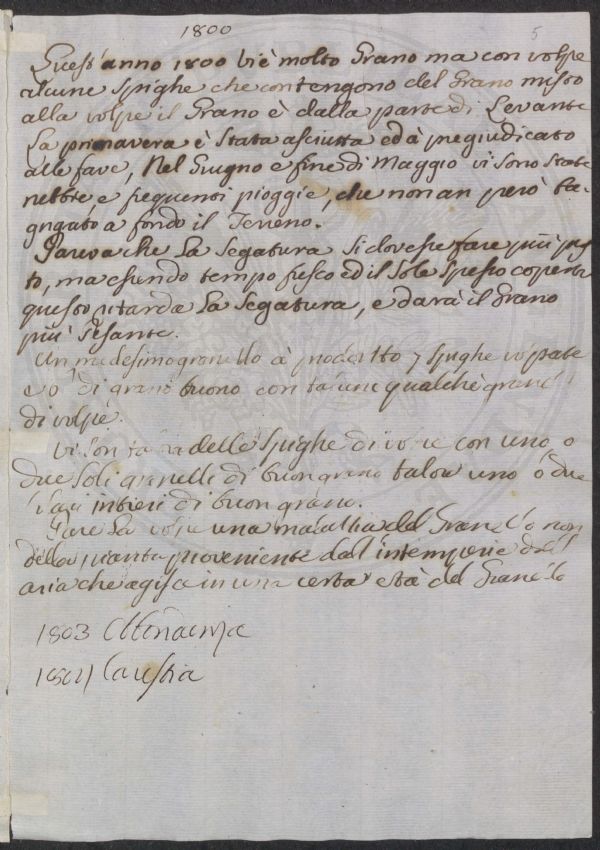 1800
5
Quest'anno 1800 vi è molto Grano ma con volpe
alcune Spighe che contengono del Grano misto
alla volpe il Grano è dalla parte di Levante
La primavera è Stata asciutta ed à pregiudicato
alle fave, Nel Giugno e fine di Maggio vi sono state
nebbie e frequenti pioggie, che non an però ba-
gngato a fondo il Terreno.
Pareva che La Segatura Si dovesse fare più pres
to, ma essendo tempo fresco ed il Sole Spesso coperto
questo ritarda La Segatura, e darà il Grano
più Pesante.
Un medesimo granello à prodotto 7 spighe volpate
e di grano buono con qualche grano
di volpe.
Vi son delle Spighe di volpe con uno o
due Soli granelli di buon grano talora uno o due
intieri di buon grano.
Pare La volpe una malattia del Granello non
della pianta proveniente dall'intemperie dell
aria che agisca in una certa età del Granello
1803
1804 Carestia